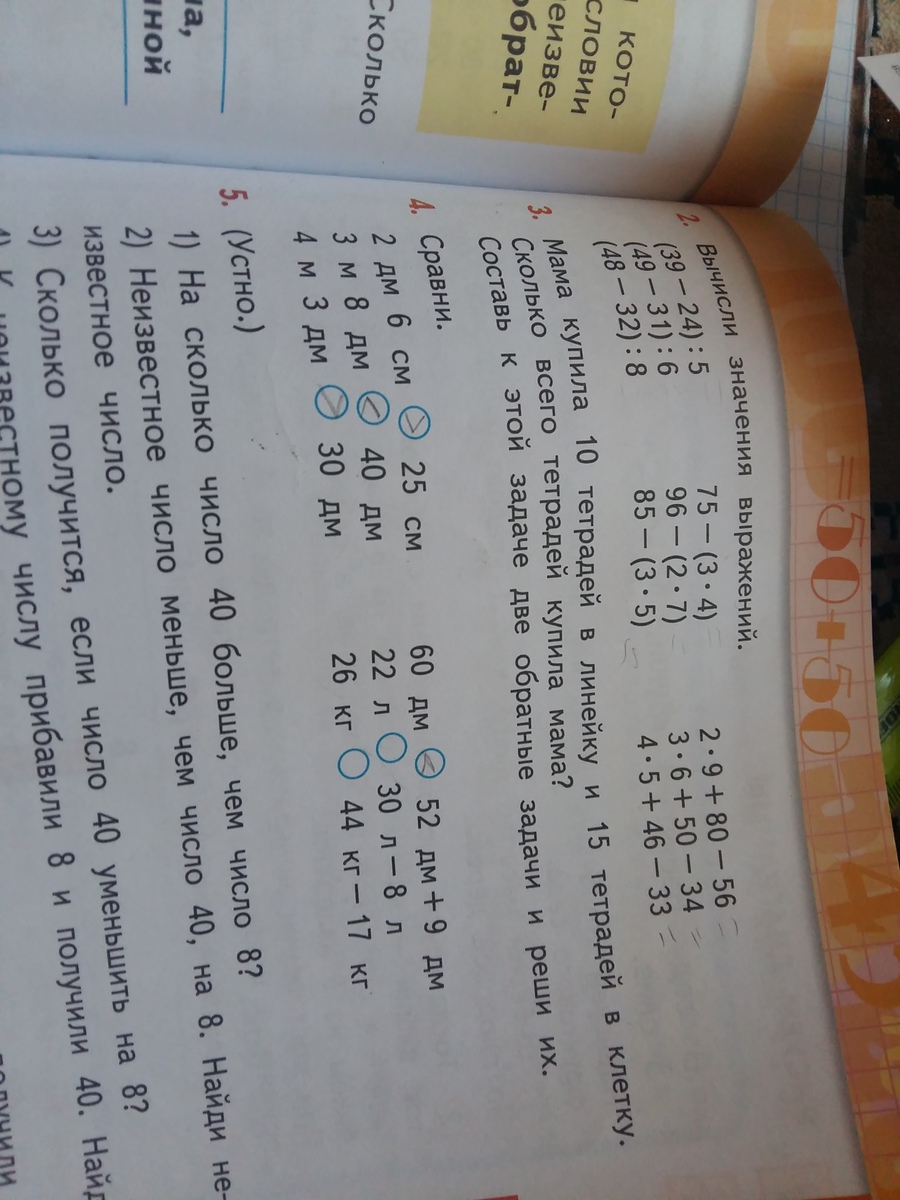 кото-
словии
еизве-
обрат-
Сколько
на,
нной
=50+50
43
2. Вычисли значения выражений.
(39 – 24) : 5 75 – (3 · 4) 2 · 9 + 80 – 56 =
(49 – 31) : 6 96 – (2 · 7) 3 · 6 + 50 – 34 =
(48 – 32) : 8 85 – (3 · 5) 4 · 5 + 46 – 33 =
3. Мама купила 10 тетрадей в линейку и 15 тетрадей в клетку.
Сколько всего тетрадей купила мама?
Составь к этой задаче две обратные задачи и реши их.
4. Сравни.
2 дм 6 см > 25 см 60 дм < 52 дм + 9 дм
3 м 8 дм < 40 дм 22 л 30 л – 8 л
4 м 3 дм > 30 дм 26 кг 44 кг – 17 кг
5. (Устно.)
1) На сколько число 40 больше, чем число 8?
2) Неизвестное число меньше, чем число 40, на 8. Найди не-
известное число.
3) Сколько получится, если число 40 уменьшить на 8?
4) К неизвестному числу прибавили 8 и получили 40. Найд